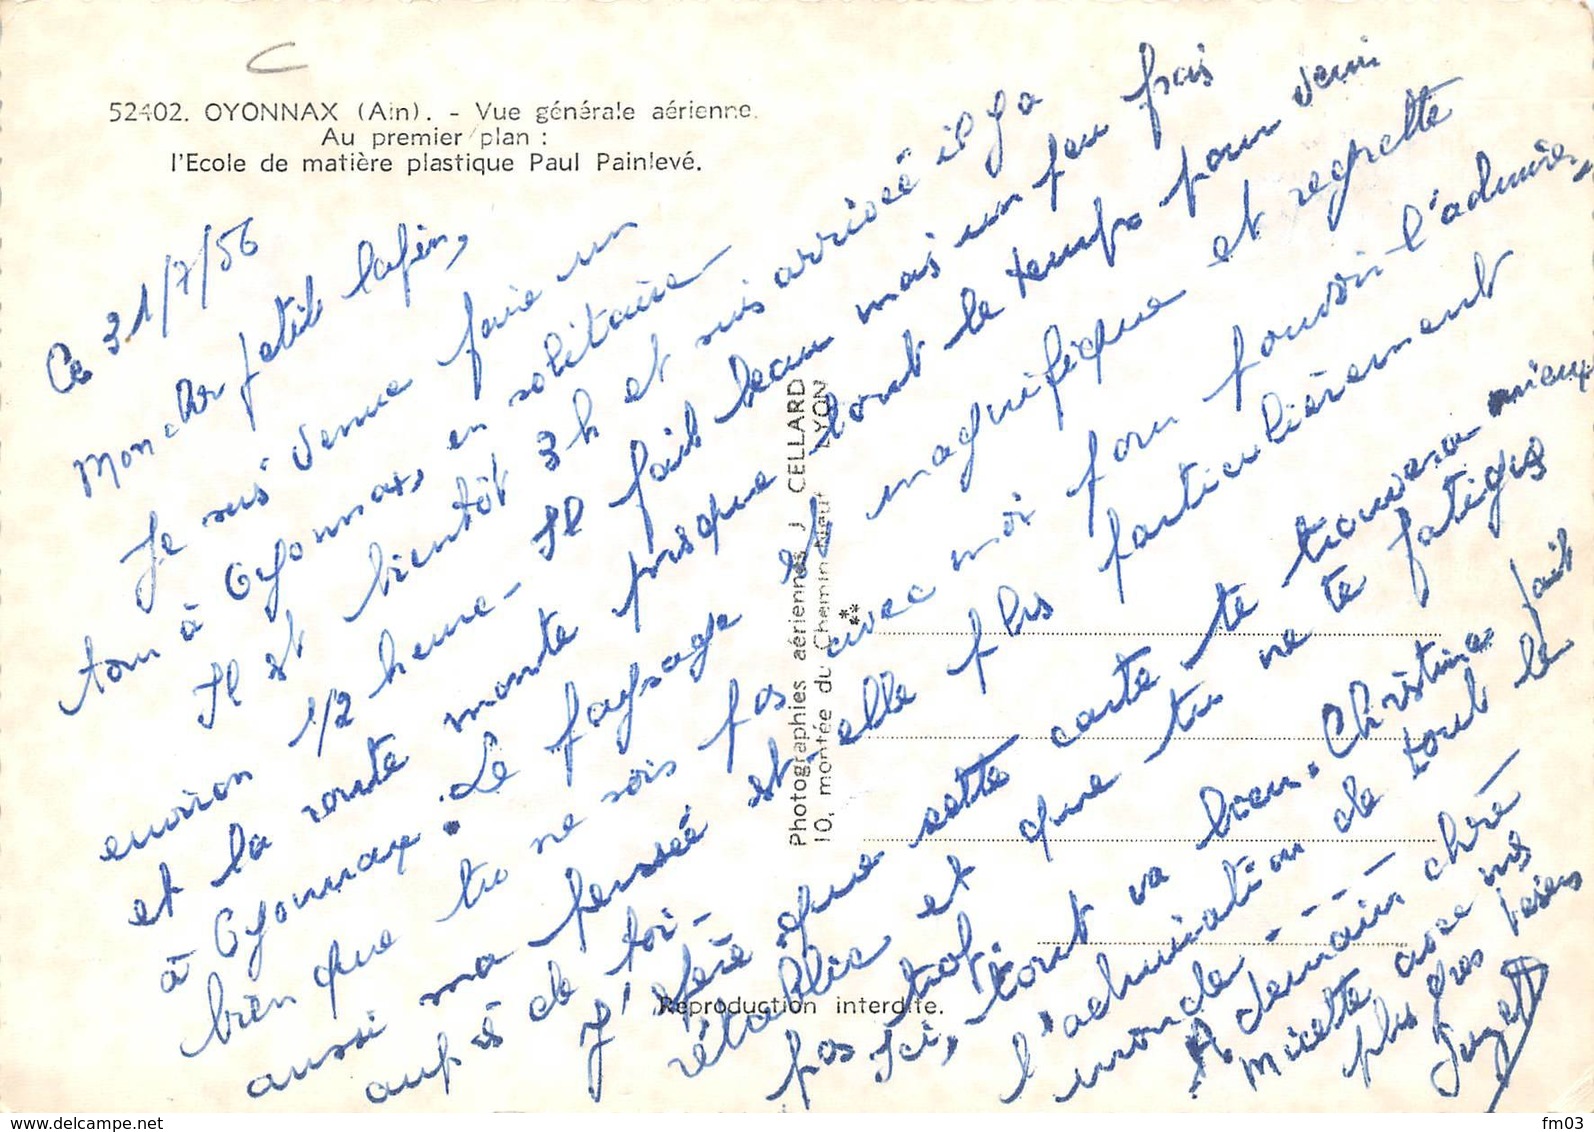 52402. OYONNAX (Ain). - Vue générale aérienne.
Au premier plan :
l'Ecole de matière plastique Paul Painlevé.
Ce 31/7/56
Mon cher petit lapin,
Je suis venue faire un
tour à Oyonnax, en solitaire -
Il est bientôt 3h et suis arrivée il y a
environ 1/2 heure - Il fait beau mais un peu frais
et la route monte presque tout le temps pour venir
à Oyonnax. Le paysage est magnifique et regrette
bien que tu ne sois pas avec moi pour pouvoir l'admirer,
aussi ma pensée est-elle plus particulièrement
auprès de toi -
J'espère que cette carte te trouvera mieux
rétablie et que tu ne te fatigues
pas trop.
Ici, tout va bien. Christine fait
l'admiration de tout le
monde - - - -
A demain chère
Minette avec mes
plus gros baisers
Suzette
Photographies aériennes J. CELLARD
10, montée du Chemin-Neuf LYON
Reproduction interdite.
fm03